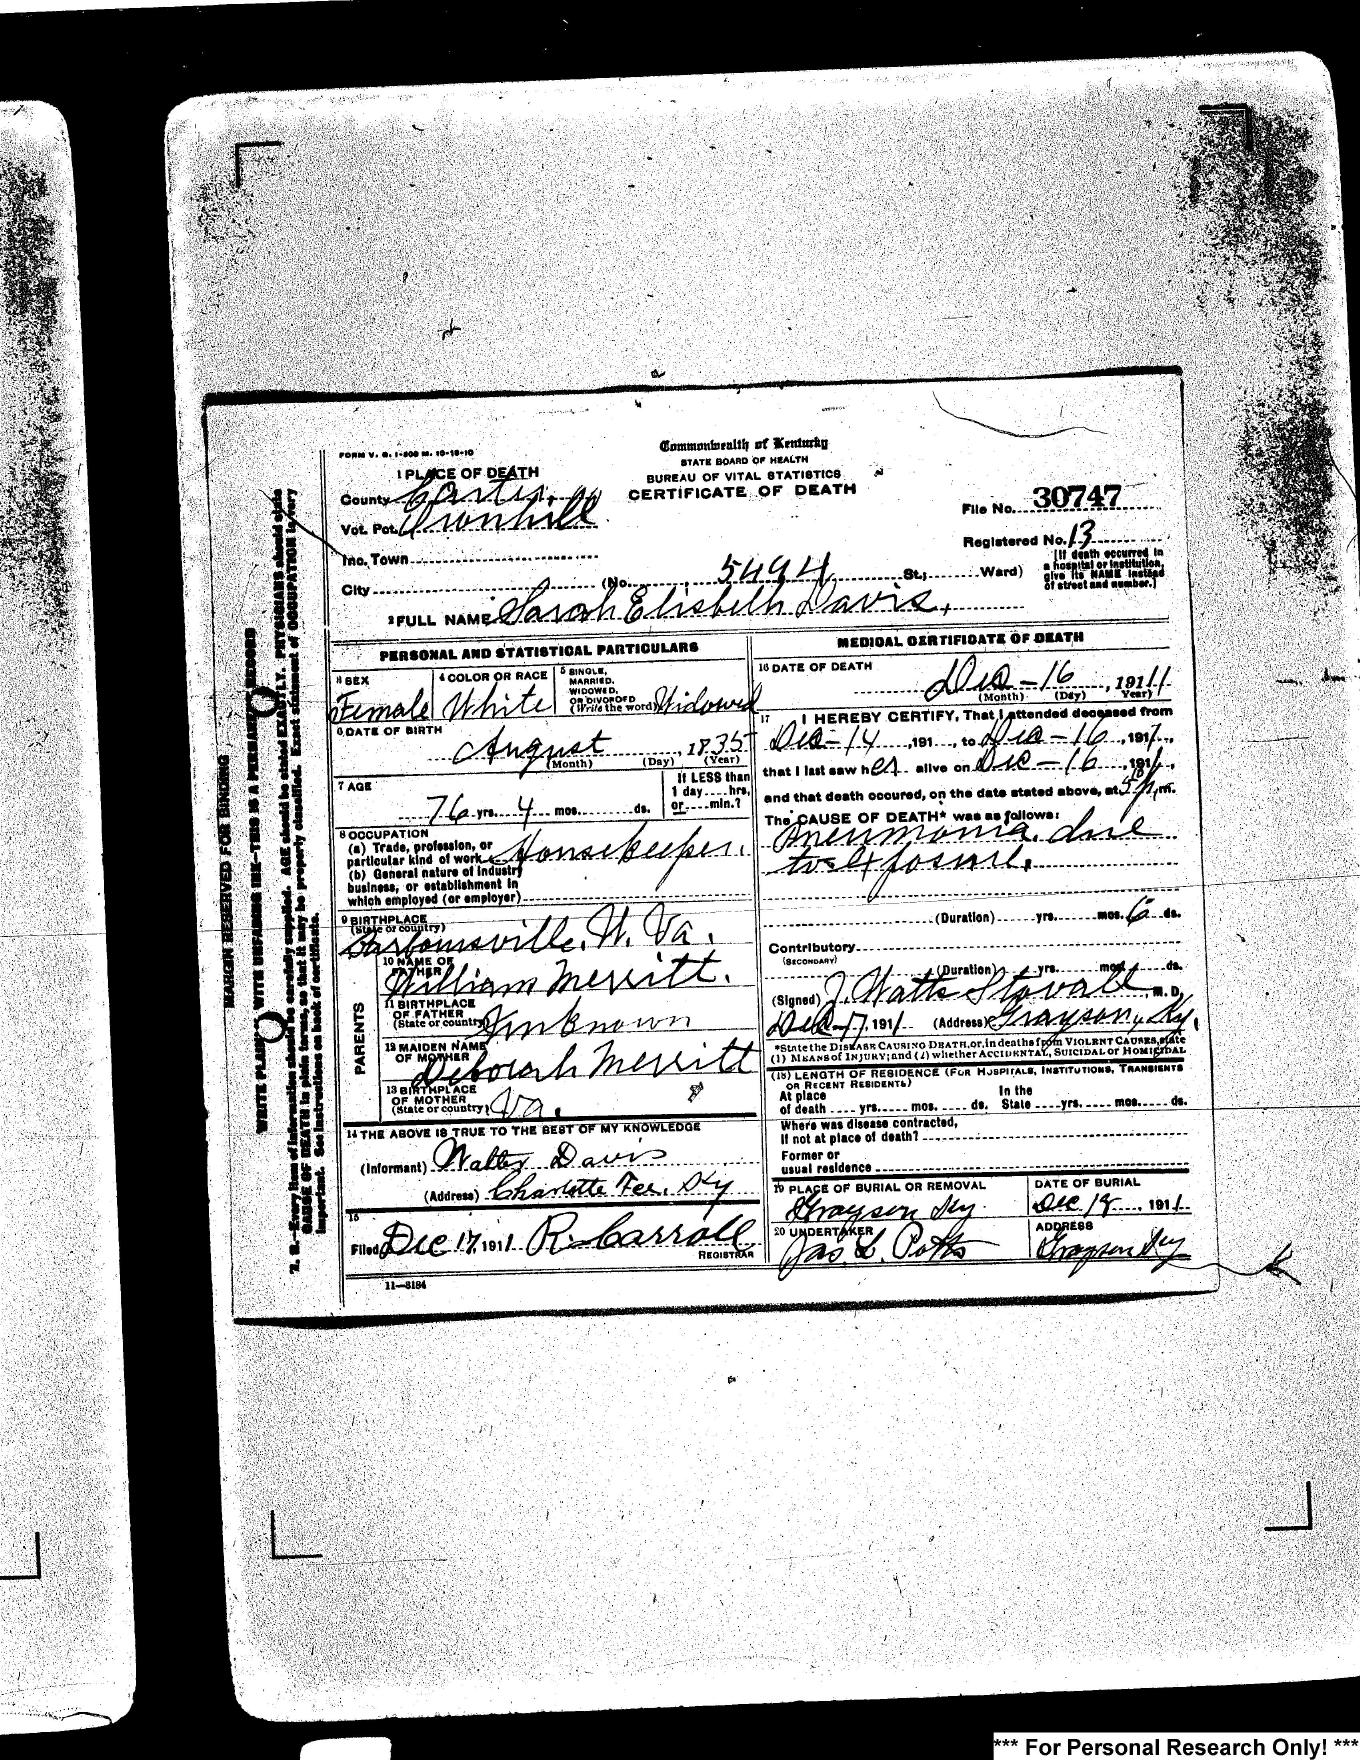 Commonwealth of Kentucky
STATE BOARD OF HEALTH
BUREAU OF VITAL STATISTICS
CERTIFICATE OF DEATH
FORM V. S. 1-500 M. 10-18-10
1 PLACE OF DEATH
County Carter
Vot. Pct. Ironhill
Inc. Town
City (No. 5494 St.; Ward)
File No. 30747
Registered No. 13
[If death occurred in
a hospital or institution,
give its NAME instead
of street and number.]
2 FULL NAME Sarah Elisbeth Davis,
PERSONAL AND STATISTICAL PARTICULARS
3 SEX
Female
4 COLOR OR RACE
White
5 SINGLE,
MARRIED,
WIDOWED,
OR DIVORCED
(Write the word) Widowed
6 DATE OF BIRTH
August , 1835
(Month) (Day) (Year)
7 AGE
76 yrs. 4 mos. ds.
If LESS than
1 day hrs.
or min.?
8 OCCUPATION
(a) Trade, profession, or
particular kind of work Housekeeper.
(b) General nature of industry
business, or establishment in
which employed (or employer)
9 BIRTHPLACE
(State or country)
Barboursville, W. Va.
PARENTS
10 NAME OF
FATHER
William Merritt.
11 BIRTHPLACE
OF FATHER
(State or country) Unknown
12 MAIDEN NAME
OF MOTHER
Deborah Merritt
13 BIRTHPLACE
OF MOTHER
(State or country) Va.
14 THE ABOVE IS TRUE TO THE BEST OF MY KNOWLEDGE
(Informant) Walter Davis
(Address) Charlotte Fur, Ky
15
Filed Dec 17, 1911 R. Carroll
REGISTRAR
11—3184
MEDICAL CERTIFICATE OF DEATH
16 DATE OF DEATH
Dec - 16 , 1911
(Month) (Day) Year)
17 I HEREBY CERTIFY, That I attended deceased from
Dec - 14 , 191 , to Dec - 16 , 1911,
that I last saw her alive on Dec - 16 , 1911,
and that death occured, on the date stated above, at 5 P. m.
The CAUSE OF DEATH* was as follows:
Pneumonia, due
to exposure.
(Duration) yrs. mos. 6 ds.
Contributory
(SECONDARY)
(Duration) yrs. mos. ds.
(Signed) J. Watts Stovall, M. D.
Dec 17, 1911 (Address) Grayson, Ky.
*State the DISEASE CAUSING DEATH, or, in deaths from VIOLENT CAUSES, state
(1) MEANS of INJURY; and (2) whether ACCIDENTAL, SUICIDAL or HOMICIDAL
(18) LENGTH OF RESIDENCE (FOR HOSPITALS, INSTITUTIONS, TRANSIENTS
OR RECENT RESIDENTS)
At place In the
of death yrs. mos. ds. State yrs. mos. ds.
Where was disease contracted,
If not at place of death?
Former or
usual residence
19 PLACE OF BURIAL OR REMOVAL
Grayson Ky
DATE OF BURIAL
Dec 18 , 1911
20 UNDERTAKER
Jas. L. Potts
ADDRESS
Grayson Ky
MARGIN RESERVED FOR BINDING
WRITE PLAINLY WITH UNFADING INK—THIS IS A PERMANENT RECORD
N. B.—Every item of information should be carefully supplied. AGE should be stated EXACTLY. PHYSICIANS should state
CAUSE OF DEATH in plain terms, so that it may be properly classified. Exact statement of OCCUPATION is very
important. See instructions on back of certificate.
*** For Personal Research Only! ***